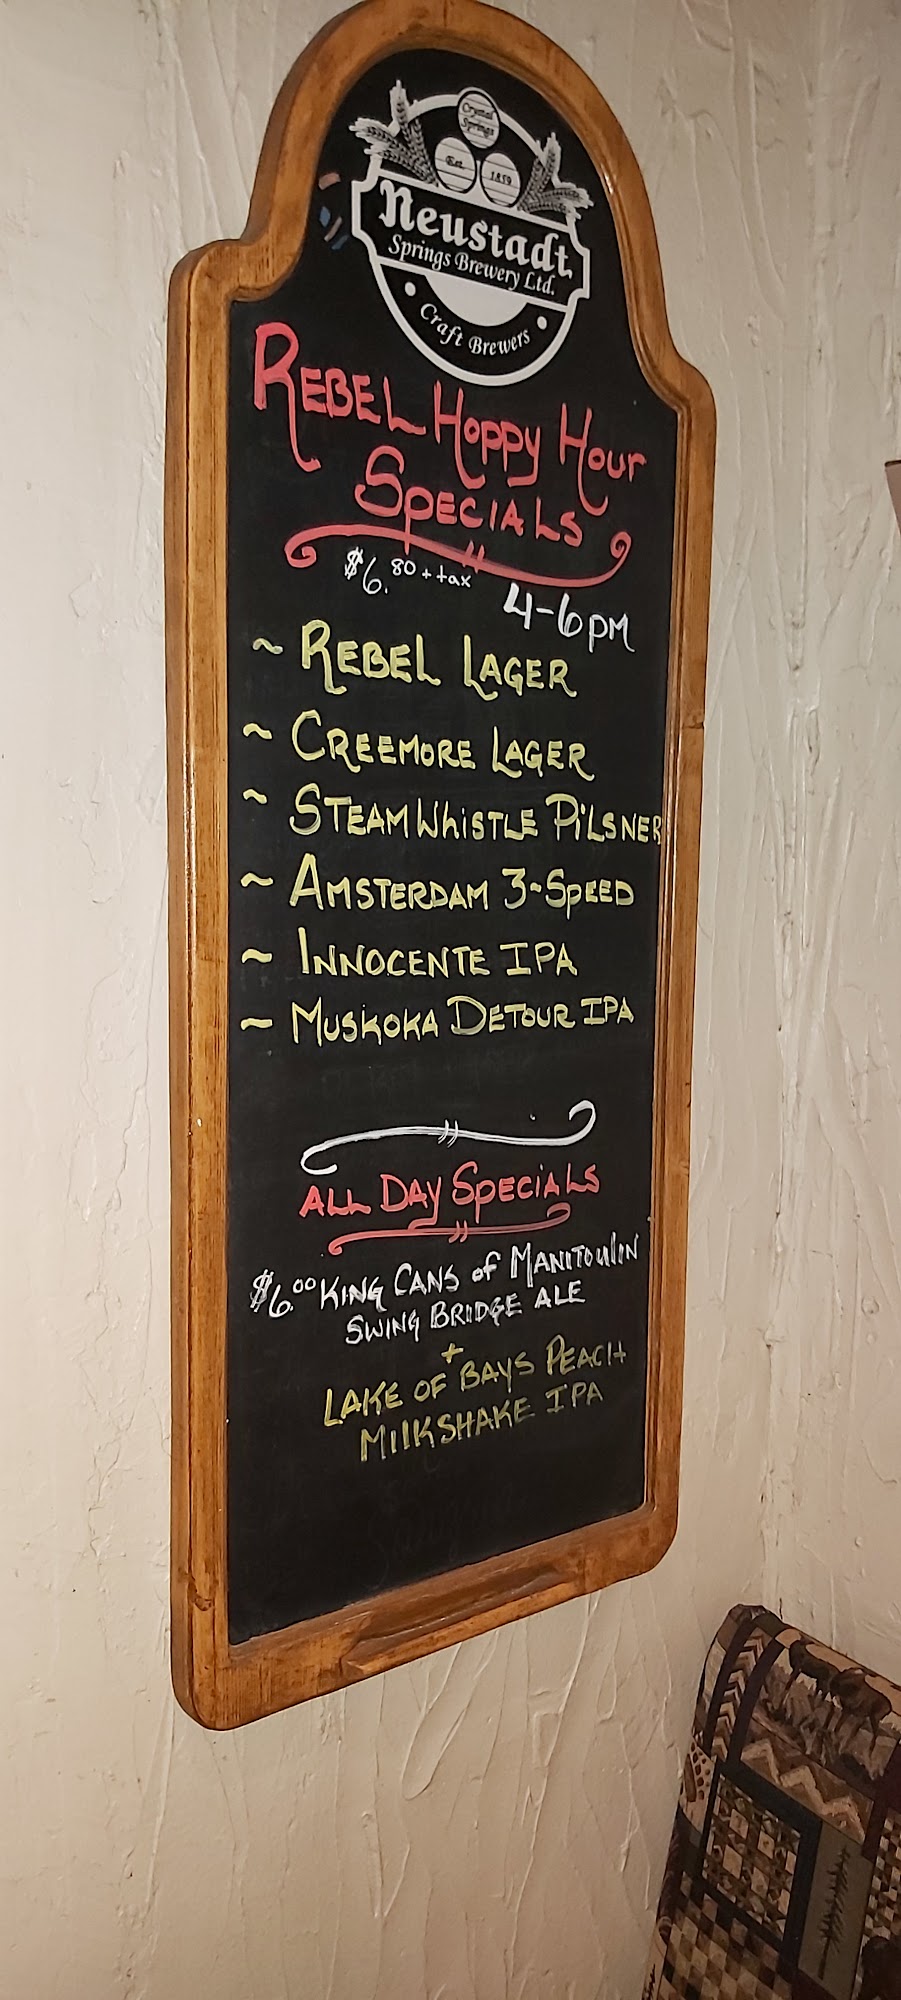 Crystal
Springs
Est. 1859
Neustadt
Springs Brewery Ltd.
Craft Brewers
REBEL HOPPY HOUR
SPECIALS
$6.80 + tax
4-6PM
~ REBEL LAGER
~ CREEMORE LAGER
~ STEAMWHISTLE PILSNER
~ AMSTERDAM 3-SPEED
~ INNOCENTE IPA
~ MUSKOKA DETOUR IPA
ALL DAY SPECIALS
$6.00 KING CANS of MANITOULIN
SWING BRIDGE ALE
+
LAKE OF BAYS PEACH
MILKSHAKE IPA